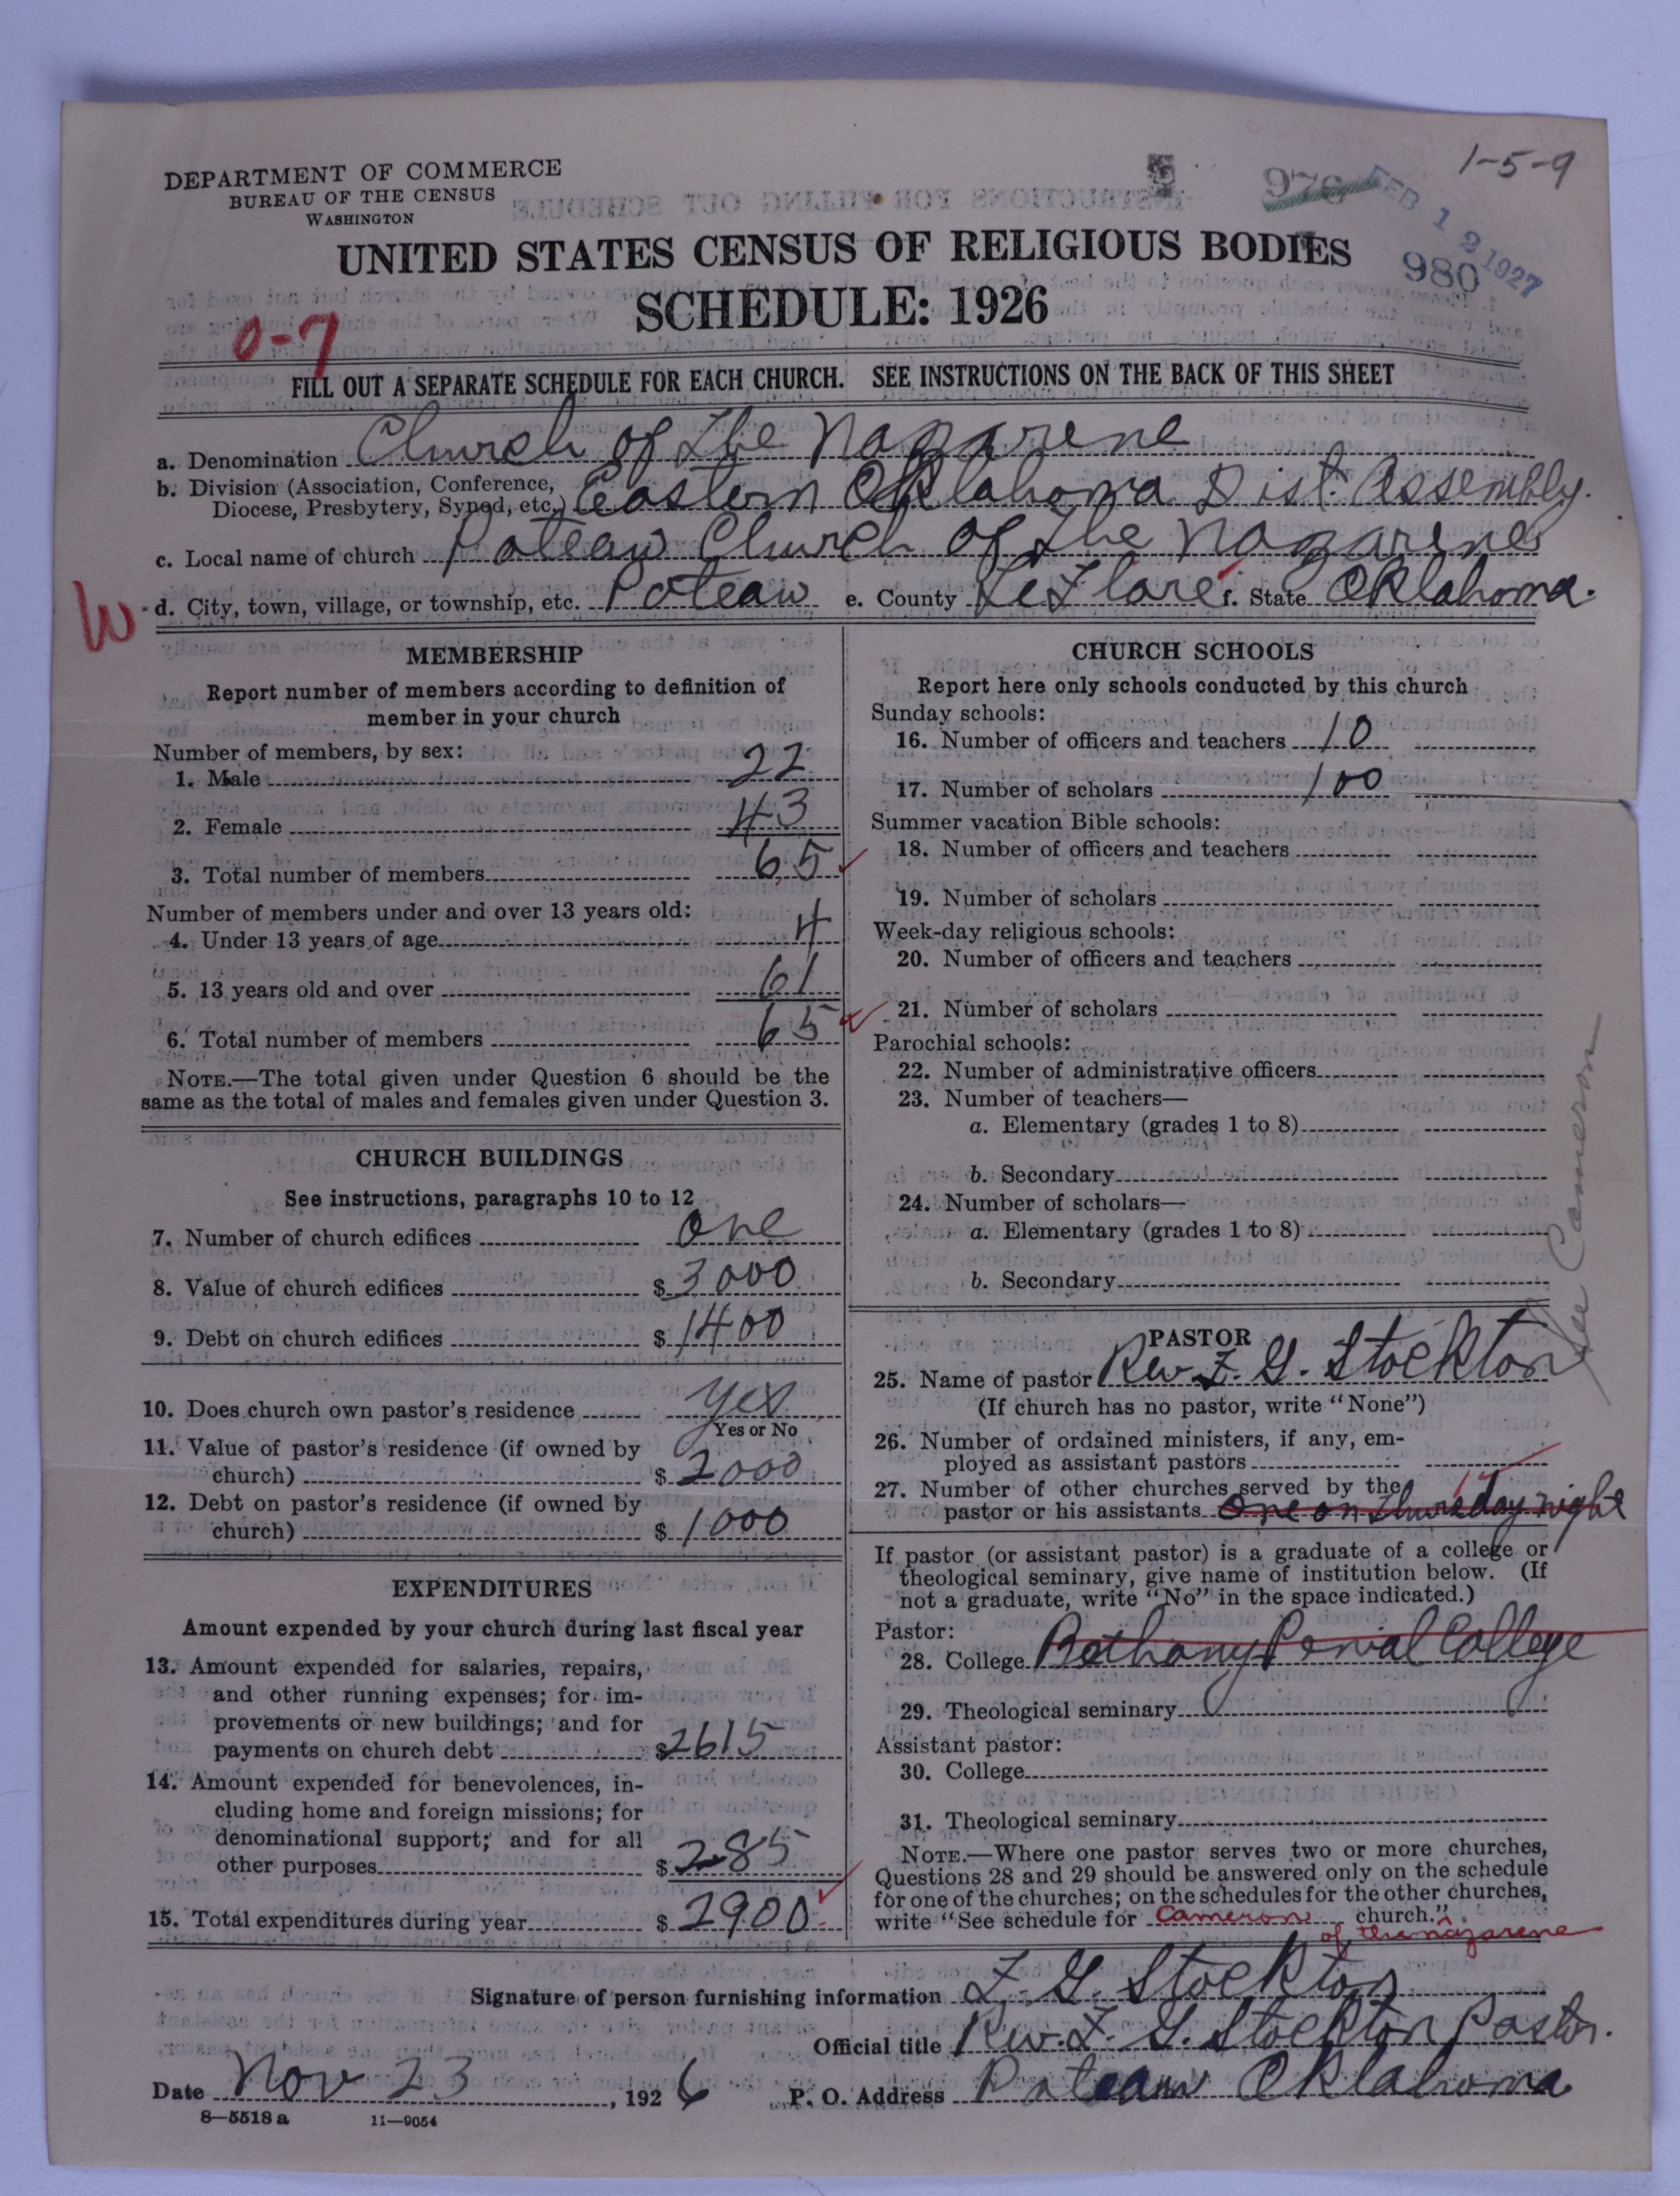 1-5-9
DEPARTMENT OF COMMERCE
BUREAU OF THE CENSUS
WASHINGTON
976
FEB 12 1927
980
UNITED STATES CENSUS OF RELIGIOUS BODIES
SCHEDULE: 1926
0-7
FILL OUT A SEPARATE SCHEDULE FOR EACH CHURCH. SEE INSTRUCTIONS ON THE BACK OF THIS SHEET
a. Denomination Church of the Nazarene
b. Division (Association, Conference, Diocese, Presbytery, Synod, etc.) Eastern Oklahoma Dist. Assembly.
c. Local name of church Poteau Church of the Nazarene
W d. City, town, village, or township, etc. Poteau e. County LeFlore f. State Oklahoma.
MEMBERSHIP
Report number of members according to definition of
member in your church
Number of members, by sex:
1. Male 22
2. Female 43
3. Total number of members 65
Number of members under and over 13 years old:
4. Under 13 years of age 4
5. 13 years old and over 61
6. Total number of members 65
NOTE.—The total given under Question 6 should be the
same as the total of males and females given under Question 3.
CHURCH BUILDINGS
See instructions, paragraphs 10 to 12
7. Number of church edifices one
8. Value of church edifices $ 3000
9. Debt on church edifices $ 1400
10. Does church own pastor's residence yes
Yes or No
11. Value of pastor's residence (if owned by
church) $ 2000
12. Debt on pastor's residence (if owned by
church) $ 1000
EXPENDITURES
Amount expended by your church during last fiscal year
13. Amount expended for salaries, repairs,
and other running expenses; for im-
provements or new buildings; and for
payments on church debt $ 2615
14. Amount expended for benevolences, in-
cluding home and foreign missions; for
denominational support; and for all
other purposes $ 285
15. Total expenditures during year $ 2900
CHURCH SCHOOLS
Report here only schools conducted by this church
Sunday schools:
16. Number of officers and teachers 10
17. Number of scholars 100
Summer vacation Bible schools:
18. Number of officers and teachers
19. Number of scholars
Week-day religious schools:
20. Number of officers and teachers
21. Number of scholars
Parochial schools:
22. Number of administrative officers
23. Number of teachers—
a. Elementary (grades 1 to 8)
b. Secondary
24. Number of scholars—
a. Elementary (grades 1 to 8)
b. Secondary
See Cameron
PASTOR
25. Name of pastor Rev. F. G. Stockton
(If church has no pastor, write "None")
26. Number of ordained ministers, if any, em-
ployed as assistant pastors
27. Number of other churches served by the
pastor or his assistants one on Thursday night
If pastor (or assistant pastor) is a graduate of a college or
theological seminary, give name of institution below. (If
not a graduate, write "No" in the space indicated.)
Pastor:
28. College Bethany Penial College
29. Theological seminary
Assistant pastor:
30. College
31. Theological seminary
NOTE.—Where one pastor serves two or more churches,
Questions 28 and 29 should be answered only on the schedule
for one of the churches; on the schedules for the other churches,
write "See schedule for Cameron church."
of the nazarene
Signature of person furnishing information F. G. Stockton
Official title Rev. F. G. Stockton Pastor.
Date Nov 23, 1926 P. O. Address Poteau Oklahoma
8—5518 a 11—9054